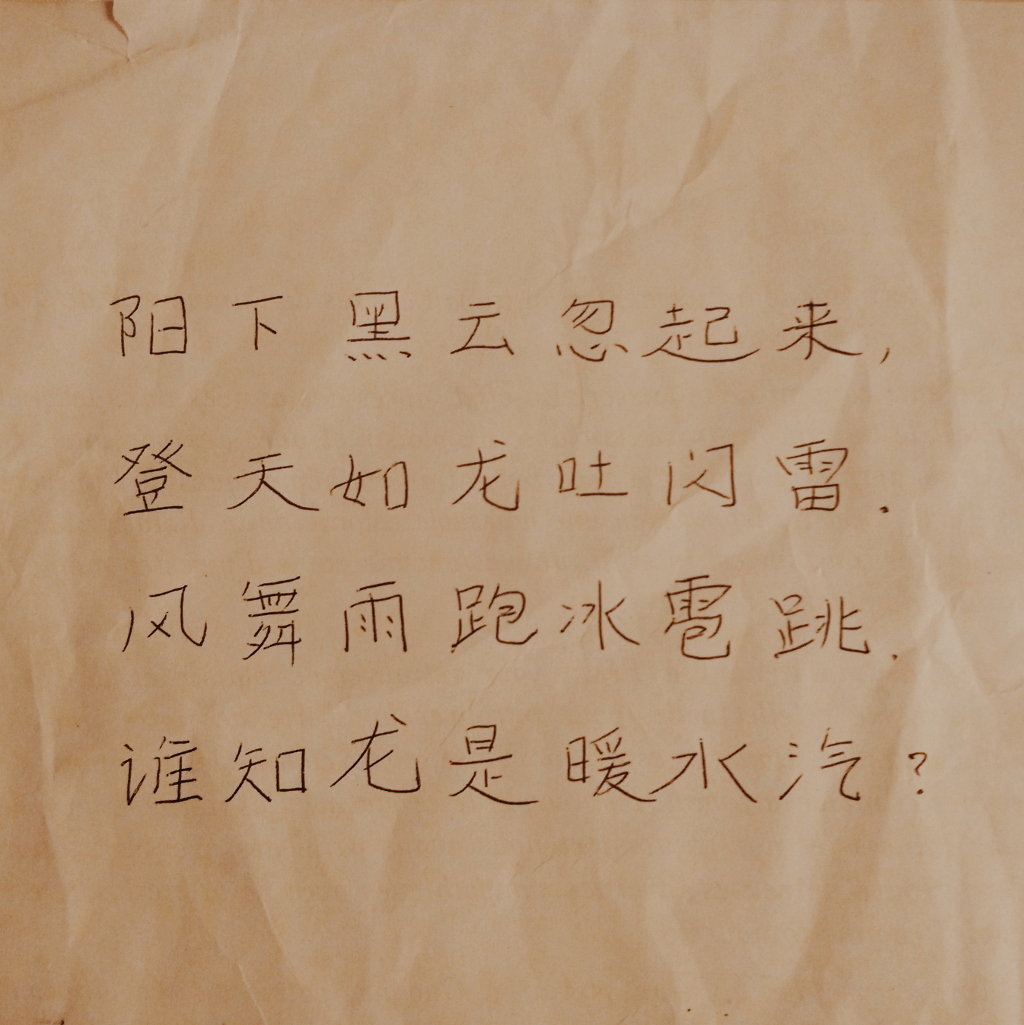 阳下黑云忽起来,
登天如龙吐闪雷.
风舞雨跑冰雹跳.
谁知龙是暖水汽?